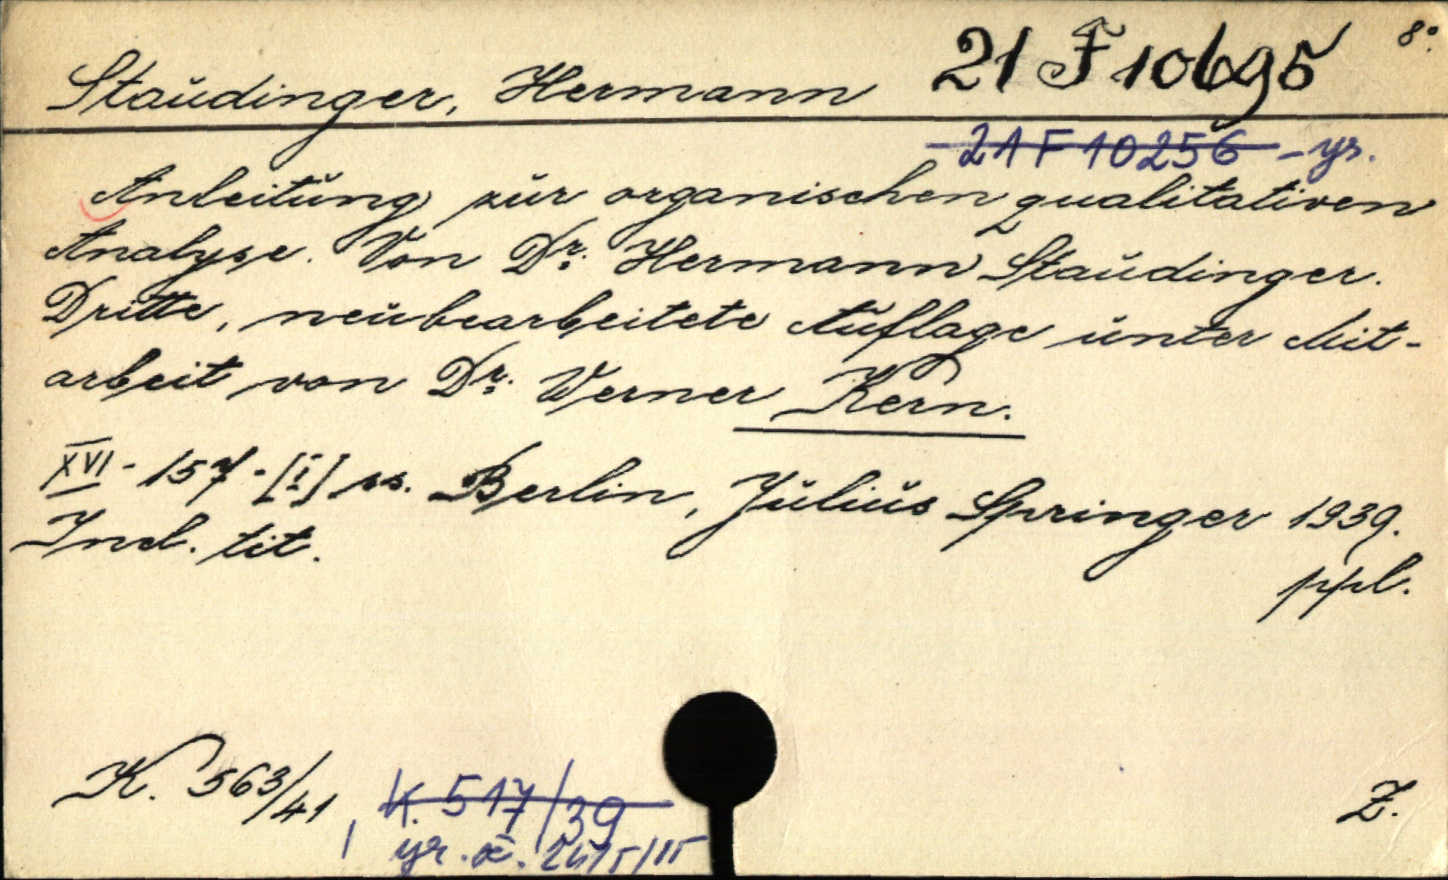 8°.
Staudinger, Hermann 21 F 10695
21 F 10256 - yr.
Anleitung zur organischen qualitativen
Analyse. Von Dr. Hermann Staudinger.
Dritte, neubearbeitete Auflage unter Mit-
arbeit von Dr. Werner Kern.
XVI - 157 - [I] ss. Berlin, Julius Springer 1939.
Incl. tit.
ppl.
K. 563/41, K. 517/39
Z.